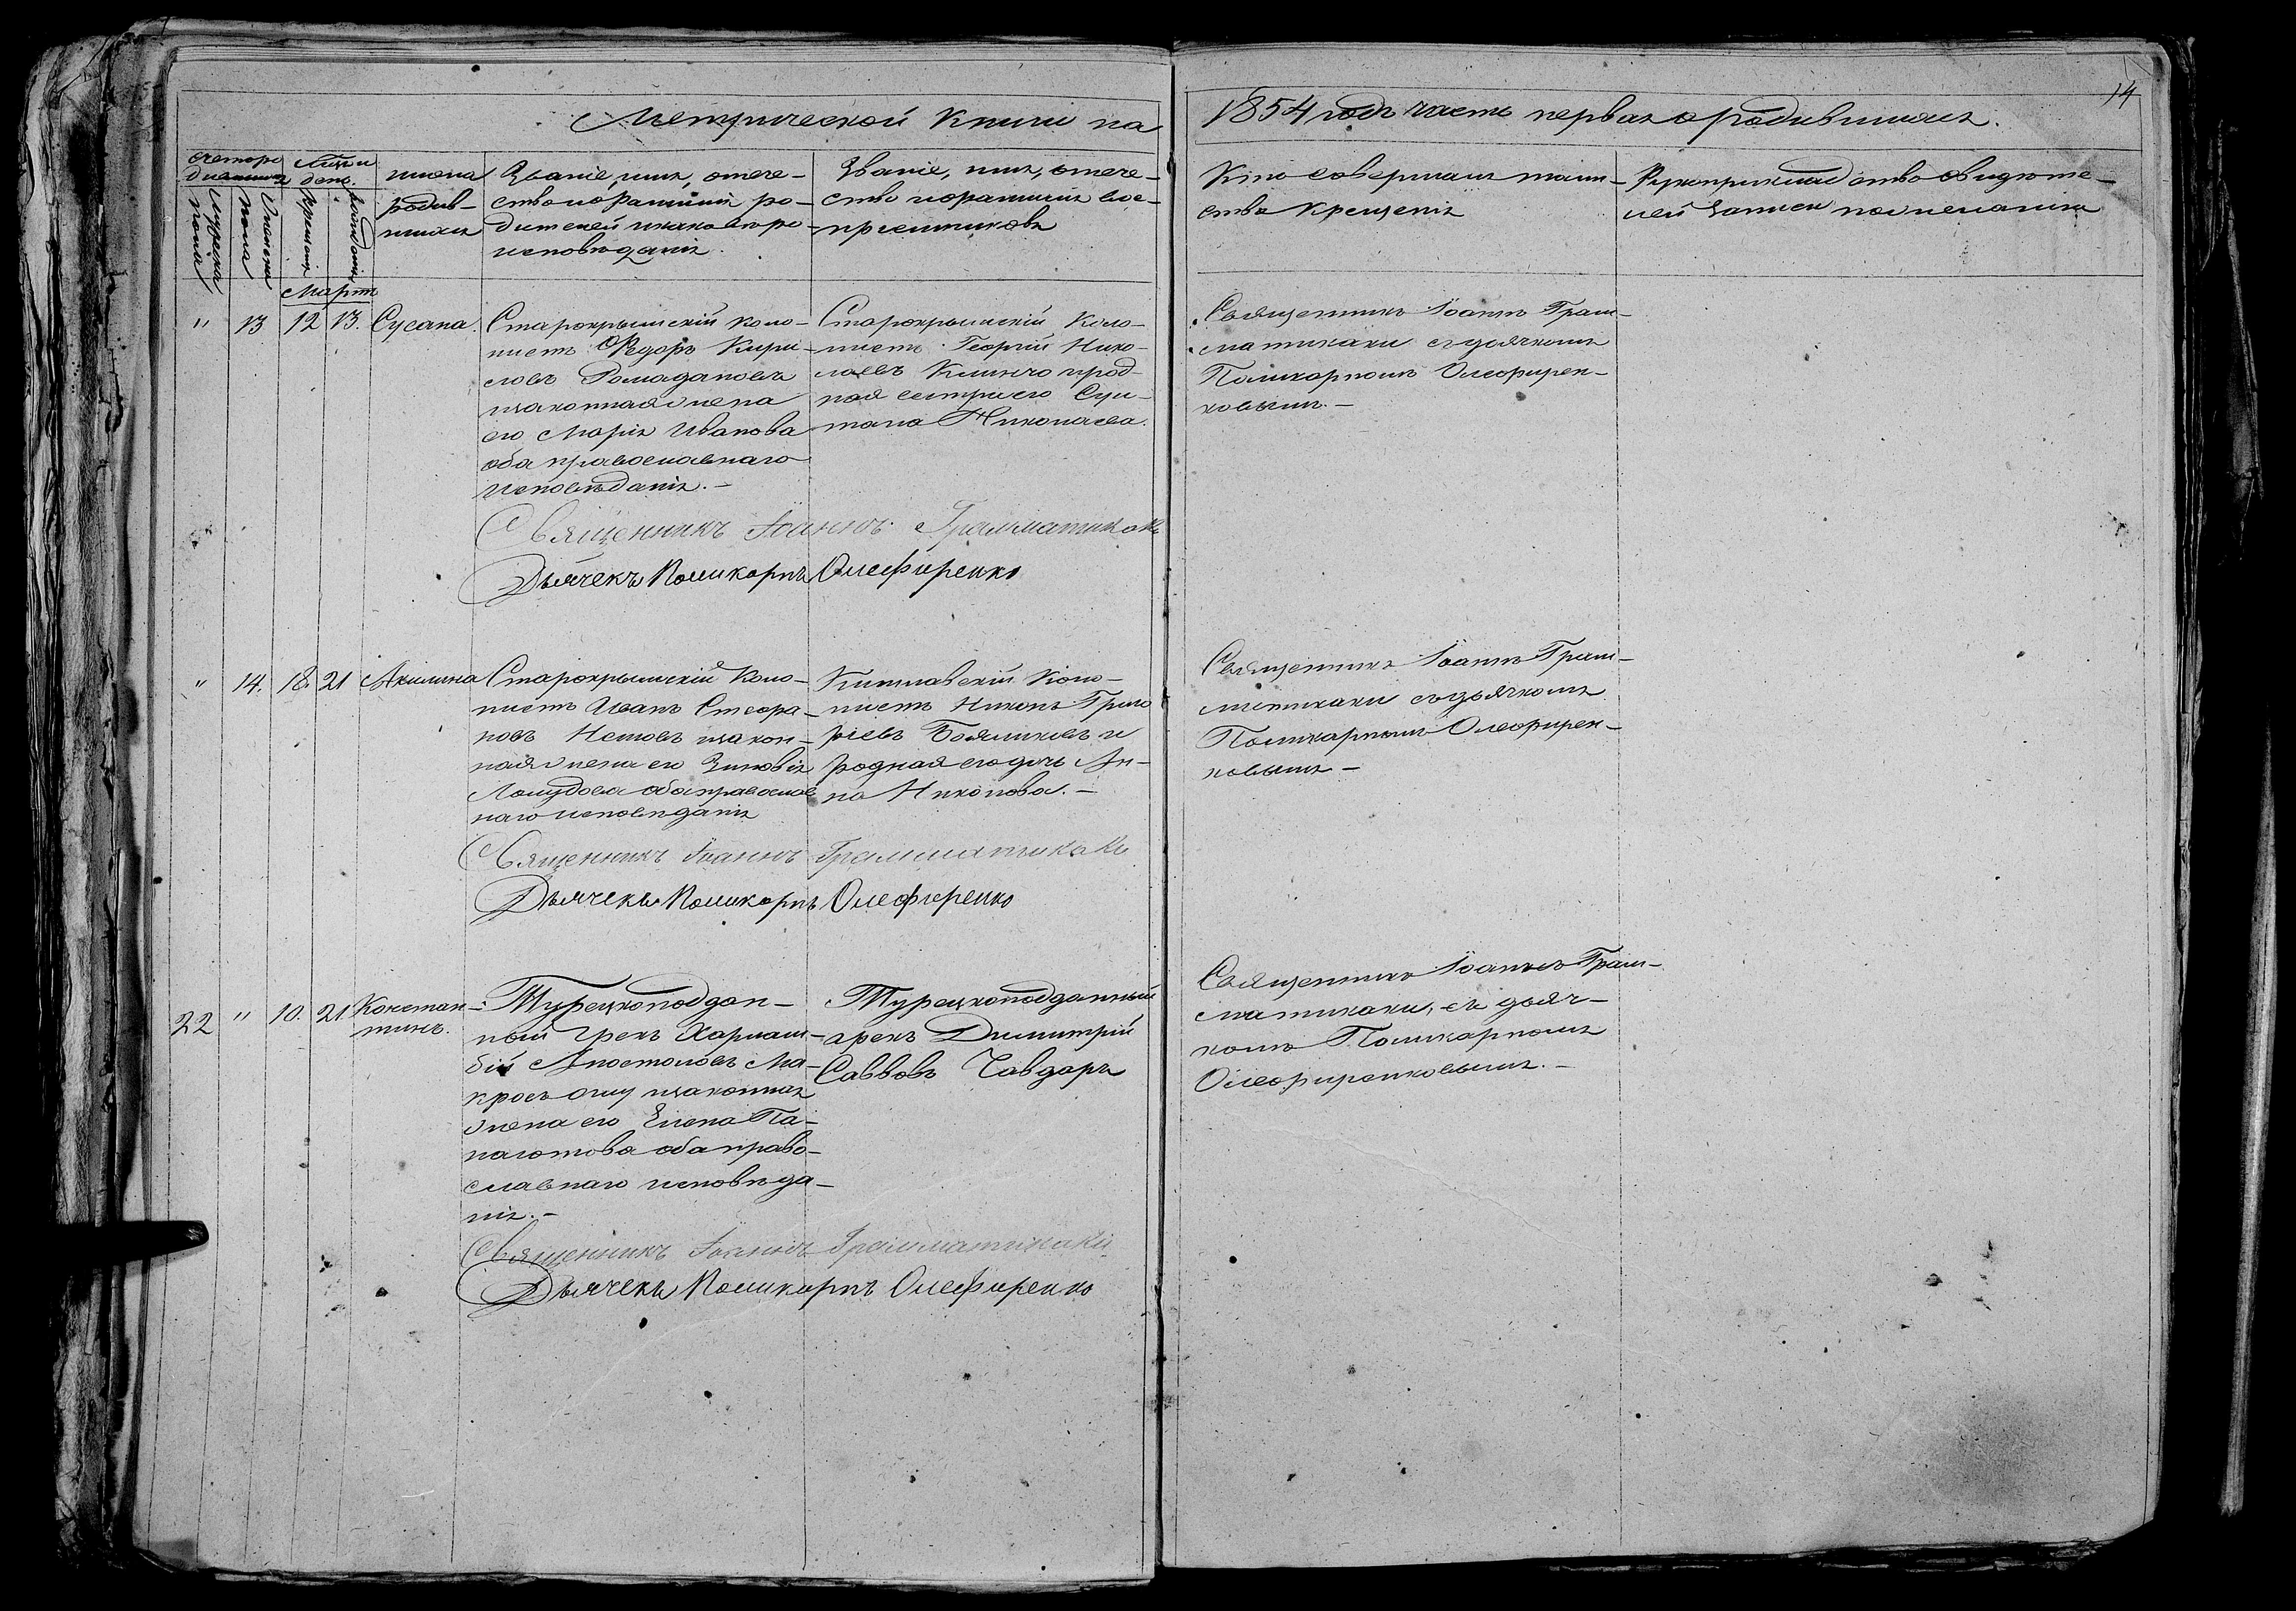 14
Метрической книги на
1854 годъ часть первая о родившихся.
счетъ ро
дившихся
Мужеска
пола
Женска
пола
Мѣсяцъ и
день.
Крещенія
Рожденія
имена
родив-
шихся
Званіе, имя, отече-
ство и фамилія ро-
дителей и какого вѣро-
исповѣданія.
Званіе, имя, отече-
ство и фамилія вос-
пріемниковъ
Кто совершалъ таин-
ство крещенія
Рукоприкладство свидѣте-
лей записи по желанію
Мартъ
" 13 12 13. Сусана.
Старокрымскій коло-
нистъ Ѳедоръ Кири-
ловъ Ромадановъ
и законная жена
его Марія Иванова
оба православнаго
исповѣданія.-
Старокрымскій Коло-
нистъ Георгій Нико-
лаевъ и род-
ная сестра его
Николаева.
Священникъ Іоаннъ Грам-
матикаки съ дьячкомъ
Поликарпомъ Олефирен-
ковымъ.-
Священникъ Іоаннъ Грамматикаки
Дьячекъ Поликарпъ Олефиренко
" 14. 18. 21 Акилина
Старокрымскій Коло-
нистъ Иванъ Стефа-
новъ и закон-
ная жена его Зиновія
оба православ
наго исповѣданія
Кишлавскій Коло-
нистъ Никонъ Григо
ріевъ и
родная его дочь Ан-
на Никонова.-
Священникъ Іоаннъ Грам-
матикаки съ дьячкомъ
Поликарпомъ Олефирен-
ковымъ-
Священникъ Іоаннъ Грамматикаки
Дьячекъ Поликарпъ Олефиренко
22 " 10. 21 Констан-
тинъ.
Турецкоподдан-
ный Грекъ Харлам-
бій Апостоловъ Ма-
и законная
жена его Елена Па-
наіотова оба право-
славнаго исповѣда-
нія.-
Турецкоподданный
грекъ Димитрій
Саввовъ Чавдаръ
Священникъ Іоаннъ Грам-
матикаки, съ дьяч-
комъ Поликарпомъ
Олефиренковымъ.-
Священникъ Іоаннъ Грамматикаки
Дьячекъ Поликарпъ Олефиренко